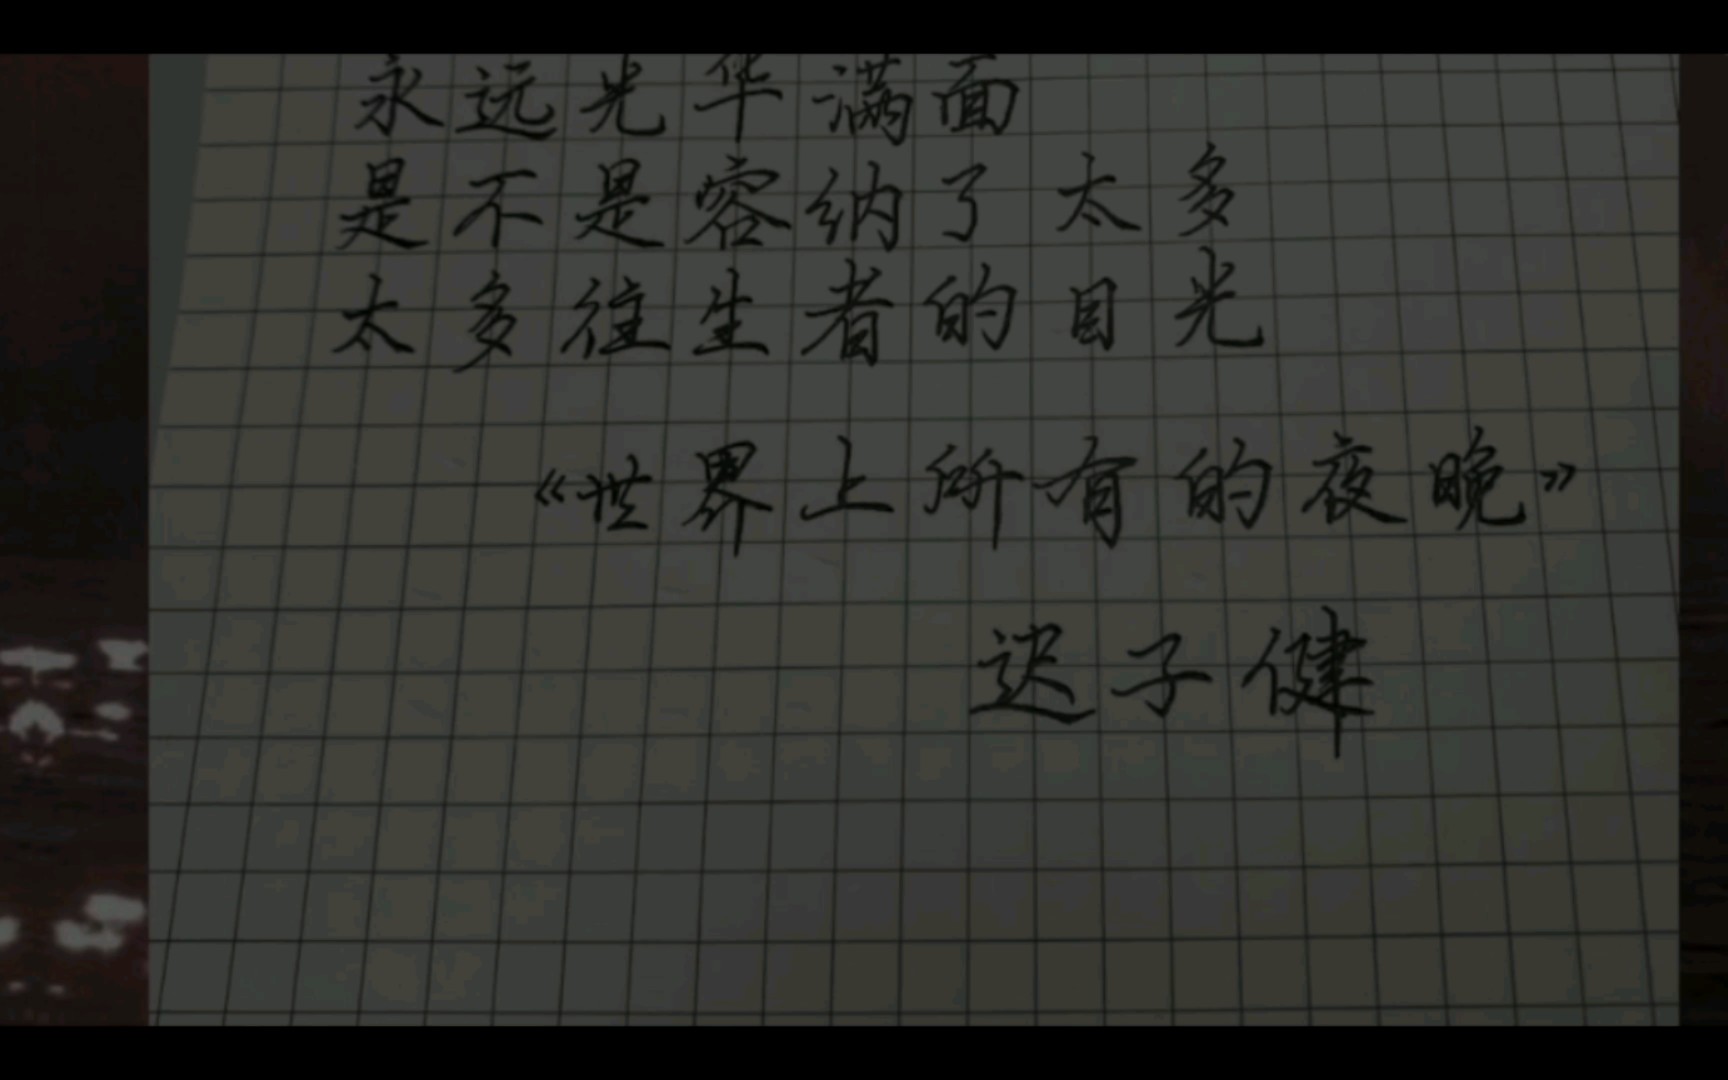 永远光华满面
是不是容纳了太多
太多往生者的目光
《世界上所有的夜晚》
迟子健